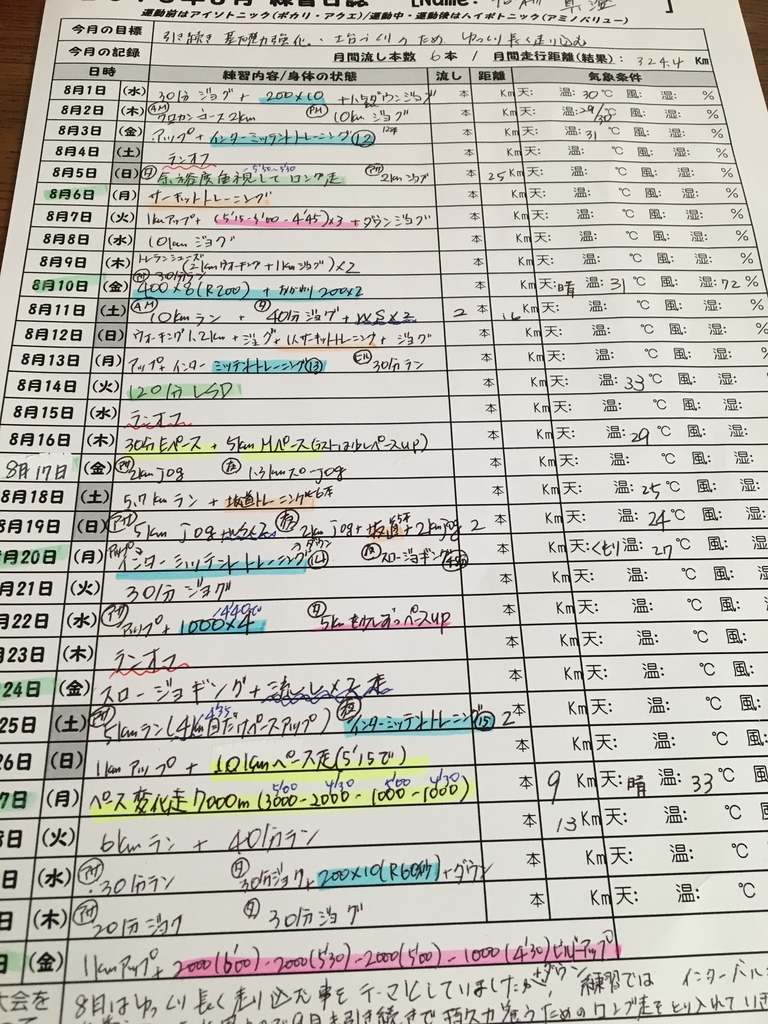 練習日誌 [Name:
運動前はアイソトニック(ポカリ・アクエ)/運動中・運動後はハイポトニック(アミノバリュー)
今月の目標 引き続き 基礎体力強化、土台づくりのため ゆっくり長く走り込む
今月の記録 月間流し本数 6本 / 月間走行距離(結果): 324.4 Km
日時 練習内容/身体の状態 流し 距離 気象条件
8月1日 (水) 30分 ジョグ + 200×10 ダウンジョグ 本 Km 天: 温: 30℃ 風: 湿: %
8月2日 (木) AM クロカンコース2km PM 10kmジョグ 本 Km 天: 温: 29/30℃ 風: 湿: %
8月3日 (金) アップ + インターミッテントトレーニング⑫ 本 Km 天: 温: 31℃ 風: 湿: %
8月4日 (土) ランオフ 本 Km 天: 温: ℃ 風: 湿: %
8月5日 (日) 余裕度重視して ロング走 5'50~5'30 2kmジョグ 本 25 Km 天: 温: ℃ 風: 湿: %
8月6日 (月) サーキットトレーニング 本 Km 天: 温: ℃ 風: 湿: %
8月7日 (火) 1kmアップ + (5'15-5'00-4'45)×3 + ダウンジョグ 本 Km 天: 温: ℃ 風: 湿: %
8月8日 (水) 10km ジョグ 本 Km 天: 温: ℃ 風: 湿: %
8月9日 (木) トレランシューズ (2kmウォーキング + 1kmジョグ)×2 本 Km 天: 温: ℃ 風: 湿: %
8月10日 (金) 30分ラン 400×8(R200) + おかわり200×2 本 Km 天:晴 温: 31℃ 風: 湿:72%
8月11日 (土) AM 10kmラン + 夕 40分ジョグ + WS×2 2 本 16 Km 天: 温: ℃ 風: 湿: %
8月12日 (日) ウォーキング1.2km + ジョグ + サーキットトレーニング + ジョグ 本 Km 天: 温: ℃ 風: 湿: %
8月13日 (月) アップ + インターミッテントトレーニング⑬ 30分ラン 本 Km 天: 温: ℃ 風: 湿:
8月14日 (火) 120分LSD 本 Km 天: 温: 33℃ 風: 湿:
8月15日 (水) ランオフ 本 Km 天: 温: ℃ 風: 湿:
8月16日 (木) 30分Eペース + 5km Mペース(ラストは少しペースup) 本 Km 天: 温: 29℃ 風: 湿:
8月17日 (金) アサ 2km jog 夜 1.3kmスローjog 本 Km 天: 温: ℃ 風: 湿:
8月18日 (土) 5.7kmラン + 坂道トレーニング6本 本 Km 天: 温: 25℃ 風: 湿:
8月19日 (日) アサ 5km jog + WS×2 夜 2km jog + 坂道5本 + 2km jog 2 本 Km 天: 温: 24℃ 風: 湿:
月20日 (月) アップ インターミッテントトレーニング⑭ ダウン 夜 スロージョギング 本 Km 天:くもり 温: 27℃ 風: 湿:
月21日 (火) 30分ジョグ 本 Km 天: 温: ℃ 風:
月22日 (水) アサ アップ + 1000×4 夕 5km 少しずつペースup 本 Km 天: 温: ℃ 風:
月23日 (木) ランオフ 本 Km 天: 温: ℃ 風:
24日 (金) スロージョギング + 流し×2走 本 Km 天: 温: ℃ 風:
25日 (土) アサ 5kmラン(4km目だけペースアップ) 4'35 夜 インターミッテントトレーニング⑮ 2 本 Km 天: 温: ℃ 風:
26日 (日) 1kmアップ + 10kmペース走(5'15で) 本 Km 天: 温: ℃ 風:
7日 (月) ペース変化走7000m (3000-2000-1000-1000) 5'00 4'30 5'00 4'30 本 9 Km 天:晴 温: 33℃ 風:
8日 (火) 6kmラン + 40分ラン 本 13 Km 天: 温: ℃
日 (水) アサ 30分ラン 夕 30分ジョグ + 200×10(R60秒) + ダウン 本 Km 天: 温: ℃
日 (木) アサ 20分ジョグ 夕 30分ジョグ 本 Km 天: 温: ℃
日 (金) 1kmアップ + 2000(6'00)-2000(5'30)-2000(5'00)-1000(4'30)ビルドアップ + ダウン
大会を 8月はゆっくり長く走り込む事をテーマとしていましたが、練習では インターバル